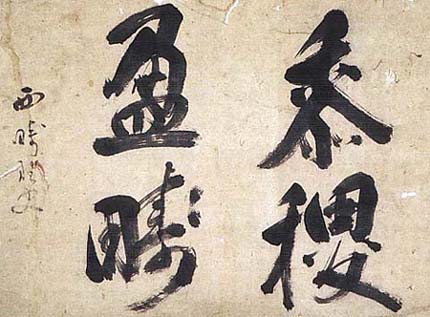 黍稷
盈疇
西疇